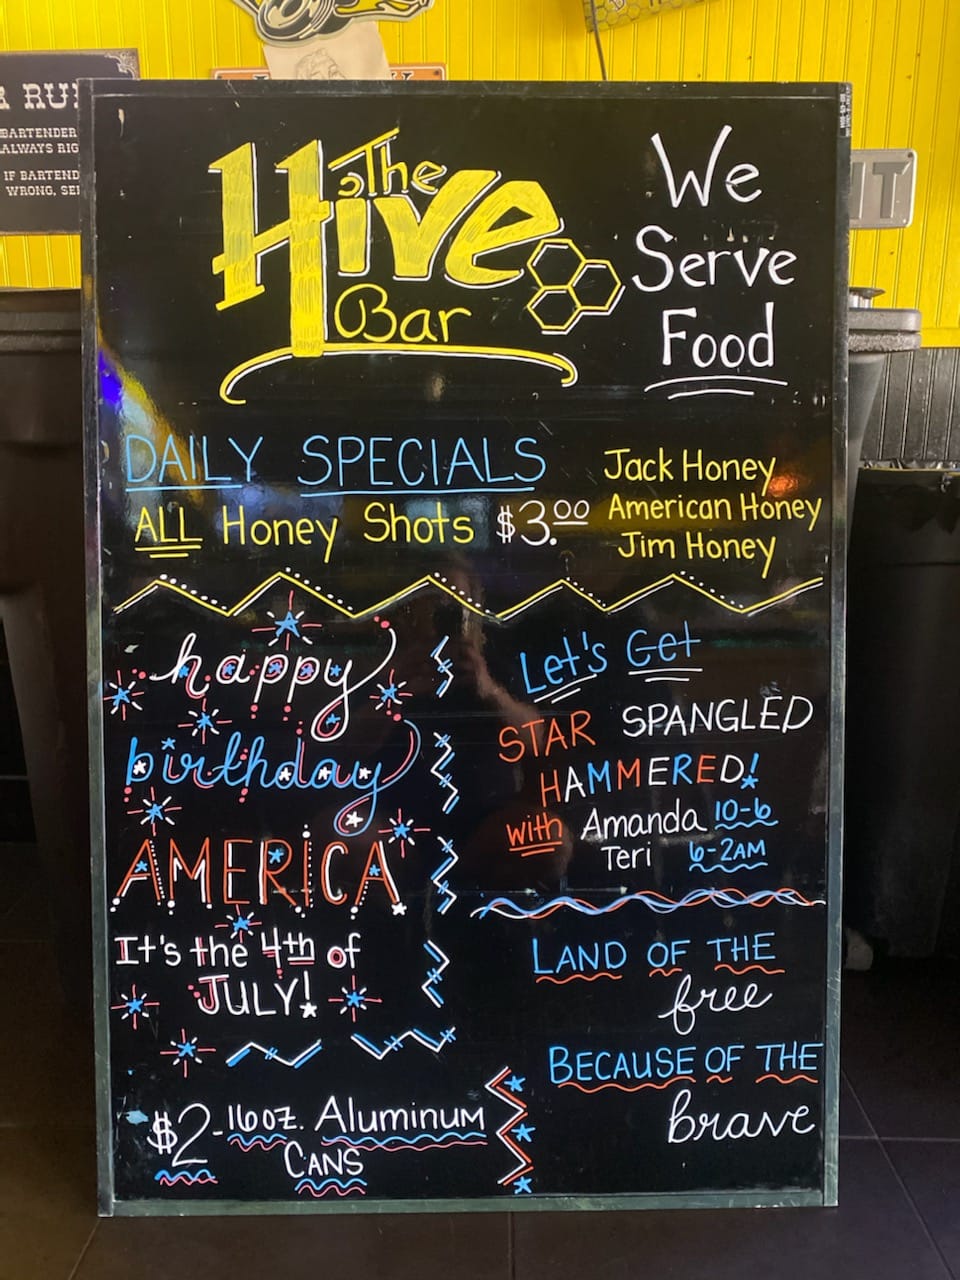 & RU
BARTENDER
ALWAYS RIG
IF BARTEND
WRONG, SE
The
Hive
Bar
We
Serve
Food
DAILY SPECIALS
ALL Honey Shots $3.00
Jack Honey
American Honey
Jim Honey
happy
birthday
AMERICA
It's the 4th of
JULY!
$2-16oz. Aluminum
Cans
Let's Get
STAR SPANGLED
HAMMERED!
with Amanda 10-6
Teri 6-2AM
LAND OF THE
free
BECAUSE OF THE
brave